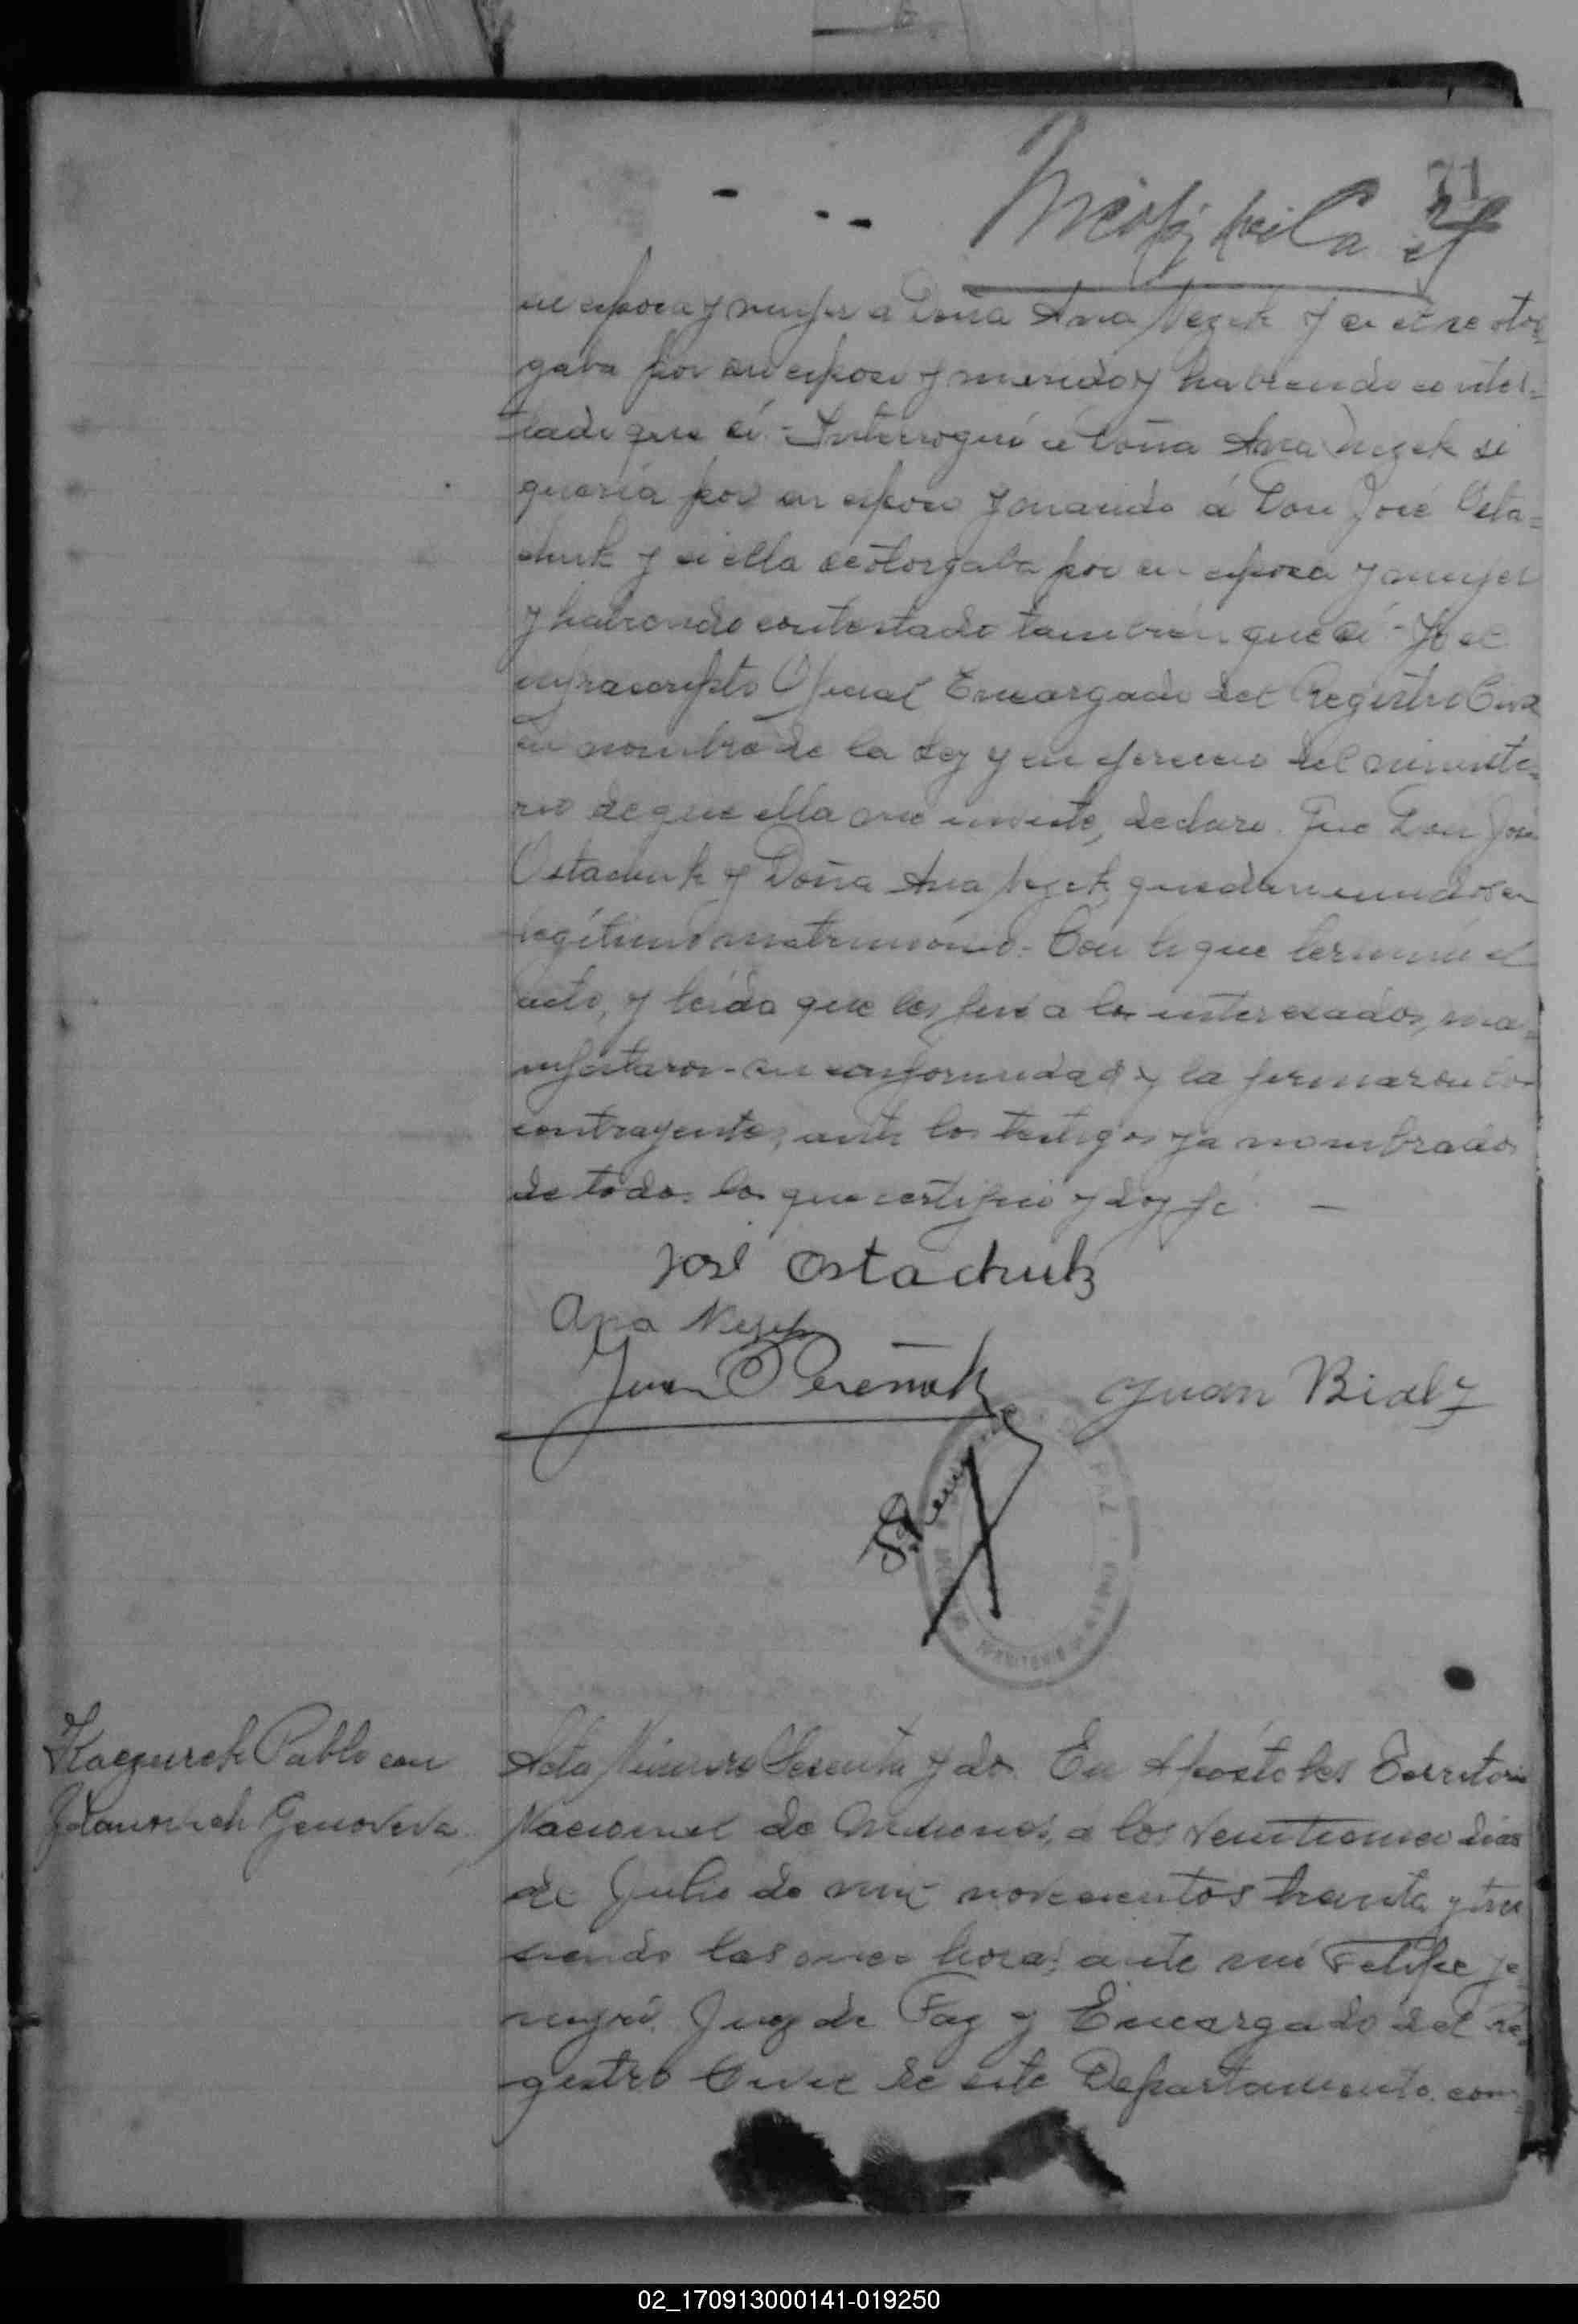 71
su esposa y mujer a Doña Ana Nezek y si el se otor-
gaba por su esposo y marido y habiendo contes-
tado que sí.- Interrogué á Doña Ana Nezek si
quería por su esposo y marido á Don José Osta-
chuk y si ella se otorgaba por su esposa y mujer
y habiendo contestado también que sí - Yo el
infrascripto Oficial Encargado del Registro Civil
en nombre de la Ley y en ejercicio del ministe-
rio de que ella me inviste, declaro. Que Don José
Ostachuk y Doña Ana Nezek, quedan unidos en
legítimo matrimonio. Con lo que terminó el
acto, y leída que les fué a los interesados, ma-
nifestaron su conformidad y la firmaron los
contrayentes, ante los testigos ya nombrados
de todo lo que certifico y doy fé. -
José Ostachuk
Ana Nezek
Juan Juan Bialy
PAZ
TERRITORIO
Kaczurek Pablo con
Genoveva
Acta Número Sesenta y dos. En Apóstoles Territorio
Nacional de Misiones, a los veinticinco días
de Julio de mil novecientos treinta y tres
siendo las once horas, ante mí Felipe
Juez de Paz y Encargado del Re-
gistro Civil de este Departamento, com-
02_170913000141-019250